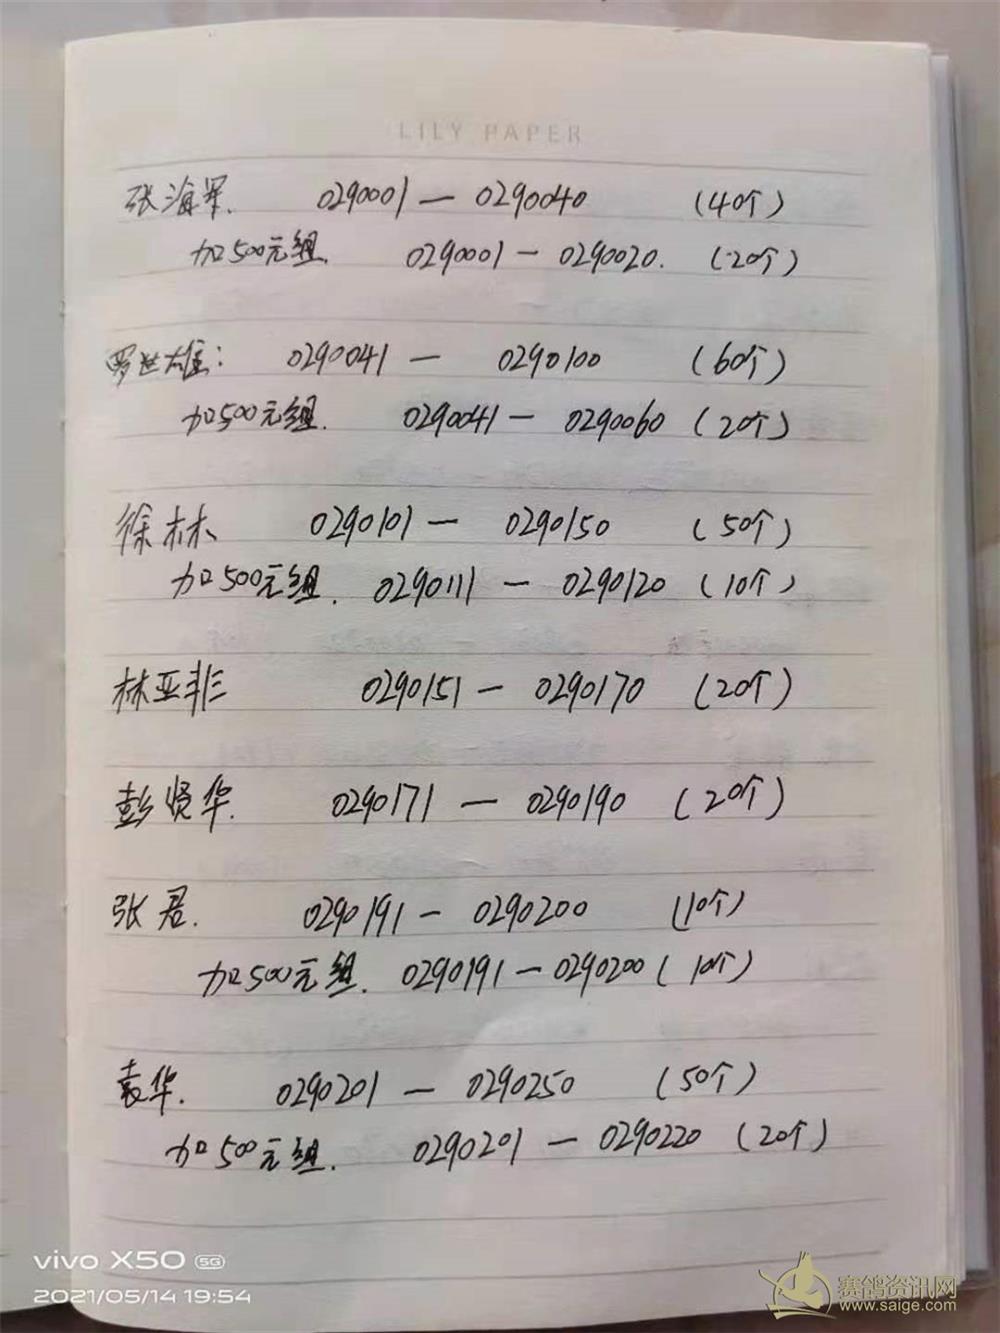 LILY PAPER
张海军. 0290001 — 0290040 (40个)
加500元组. 0290001 — 0290020. (20个)
罗世雄: 0290041 — 0290100 (60个)
加500元组. 0290041 — 0290060 (20个)
徐林 0290101 — 0290150 (50个)
加500元组. 0290111 — 0290120 (10个)
林亚非 0290151 — 0290170 (20个)
彭贤华. 0290171 — 0290190 (20个)
张君. 0290191 — 0290200 (10个)
加500元组. 0290191 — 0290200 (10个)
袁华. 0290201 — 0290250 (50个)
加500元组. 0290201 — 0290220 (20个)
vivo X50 5G
2021/05/14 19:54
赛鸽资讯网
www.saige.com